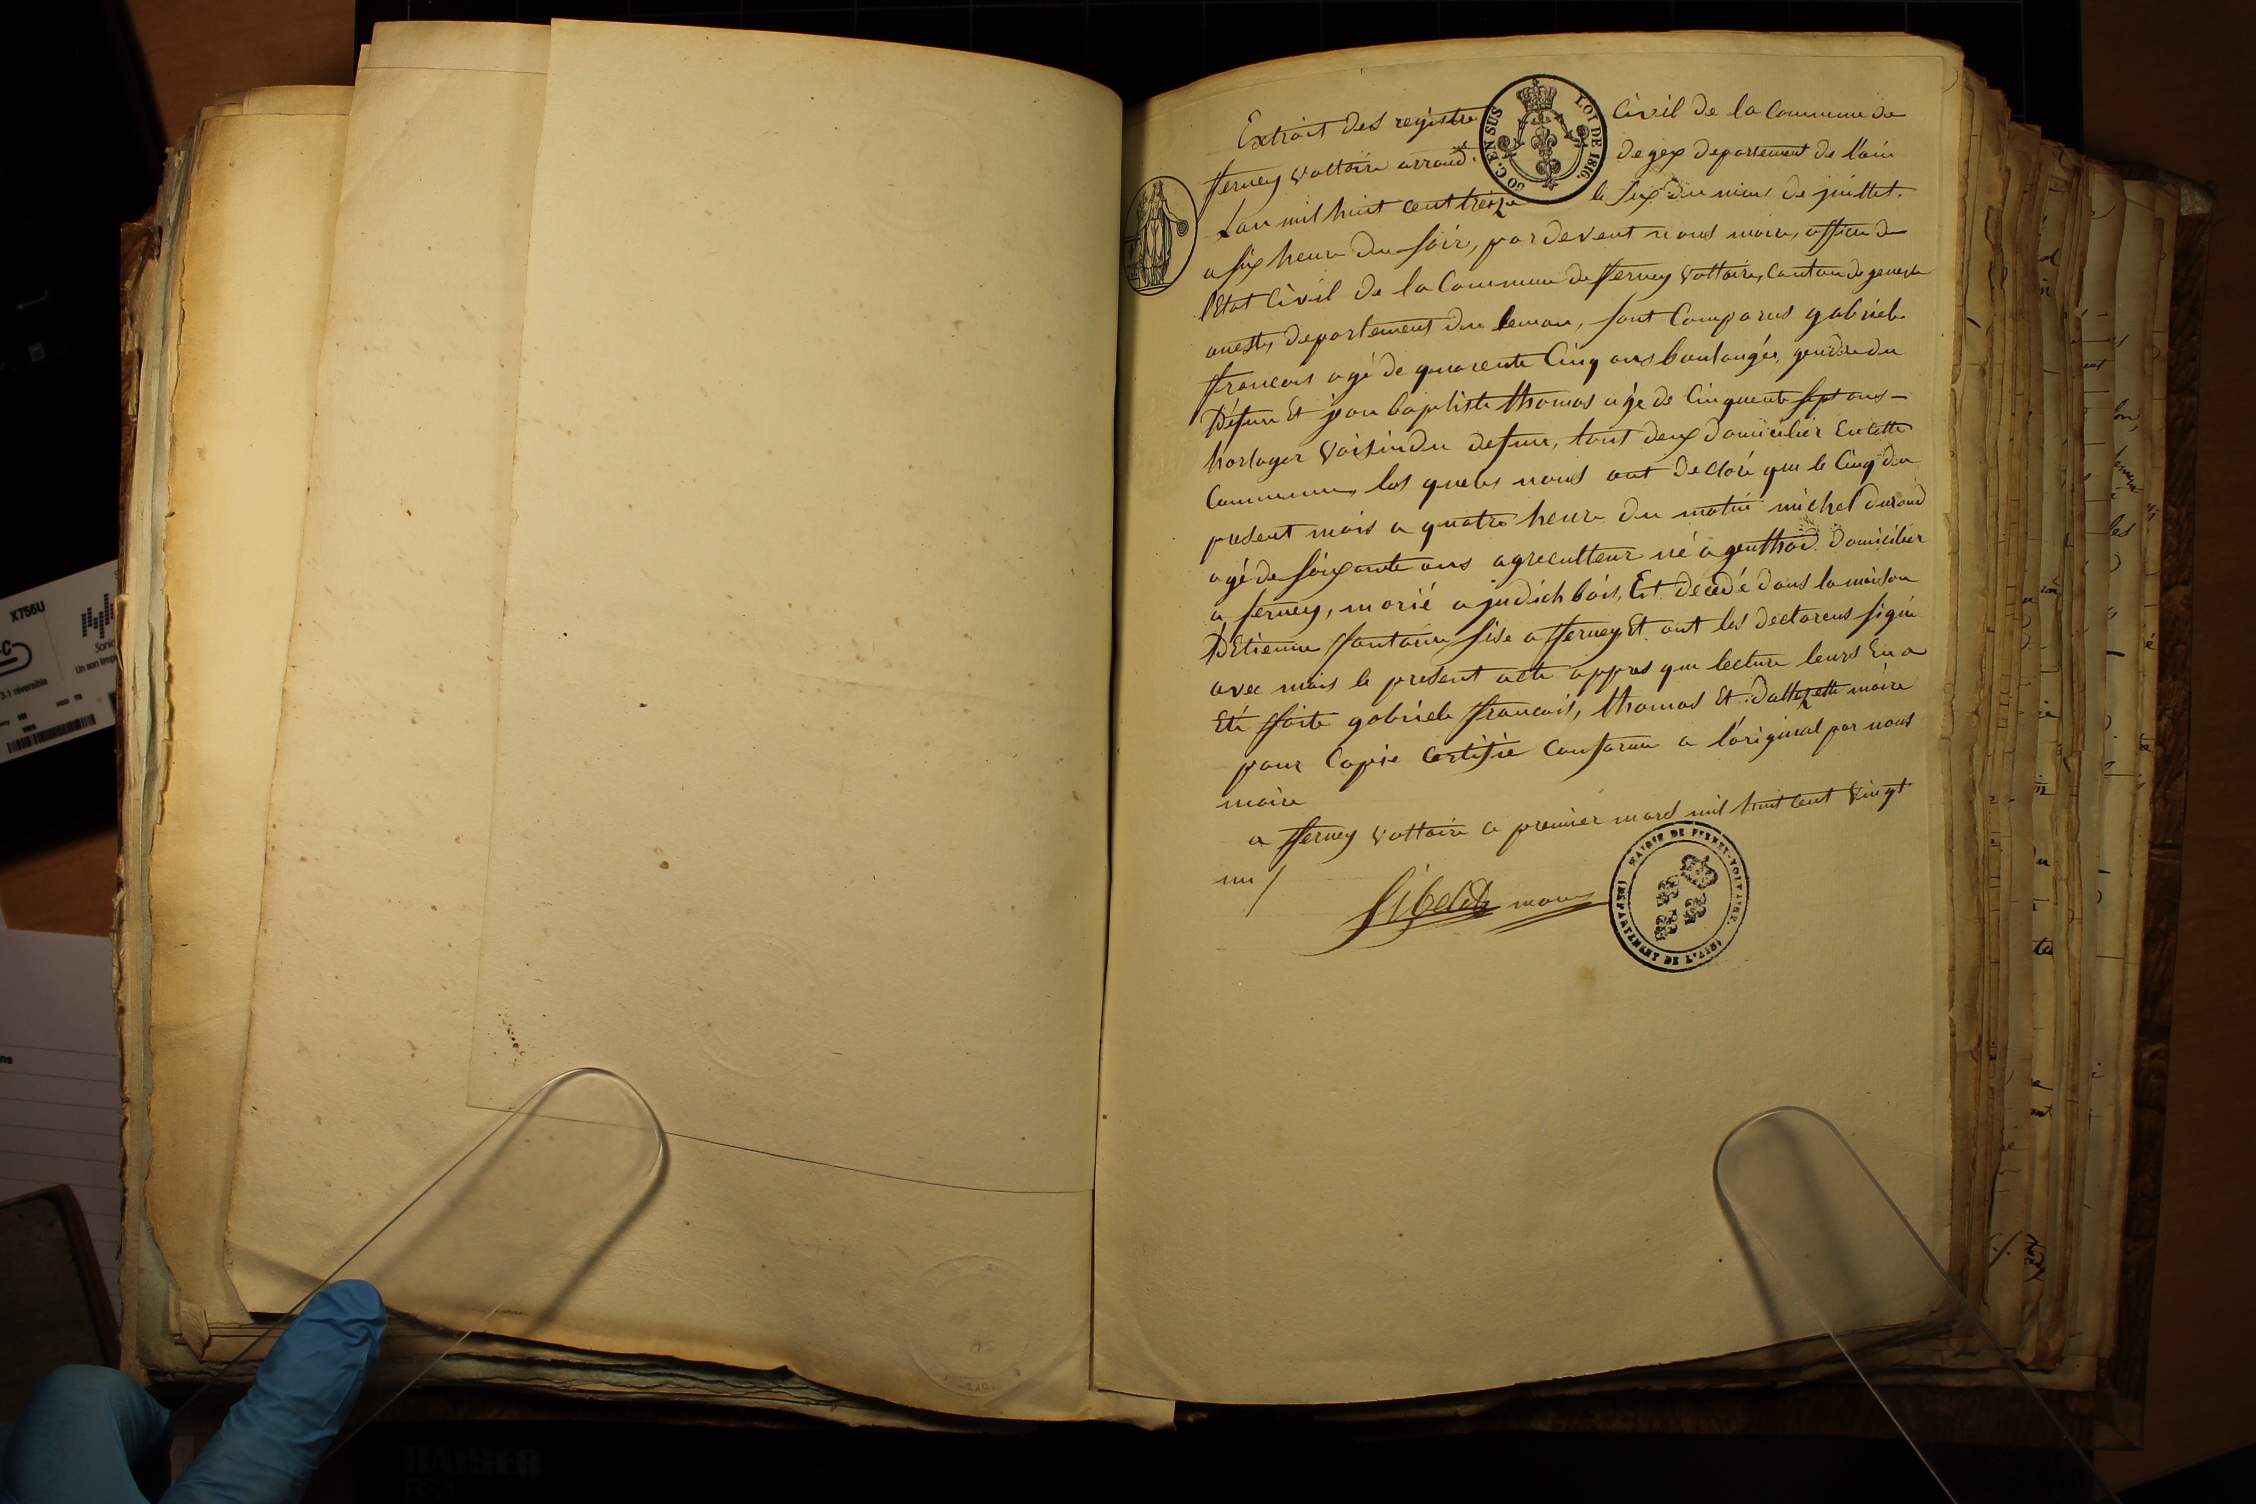 Extrait des registre Civil de la Commune de
fferney Voltaire arrond.t de gex departement de l'ain
Lan mil huit cent treize le six du mois de juillet.
a six heure du soir, par devent nous maire, officie de
l'Etat Civil de la Commune de fferney Voltaire, Canton de geneve
ouest, departement du leman, sont Comparus gabriele
francois agé de quarente Cinq ans boulangér, gendre du
Défun Et jean baptiste thomas agé de Cinquente sept ans —
horloger Voisin du defun, tout deux domicilier En cette
Commune, les quels nous ont declaré que le Cinq du
present mois a quatre heure du matin michel durand
agé de soixante ans agreculteur né a genthod. domicilier
a ferney, marié a judich bois, Est decedé dans la maison
D'Etienne ffontaine sise a fferney Et ont les declarens signé
avec mois le present acte appres que lecture leurs En a
Eté ffaite gabriele francois, thomas Et dallozette maire
pour Copie certifié Conforme a l'original par nous
maire
a fferney Voltaire a premier mars mil huit cent Vingt
un /
maire
50 C. EN SUS
LOI DE 1816.
MAIRIE DE FERNEY-VOLTAIRE.
(DEPARTEMENT DE L'AIN)
X756U
3.1 réversible
Un son limp
KAISER